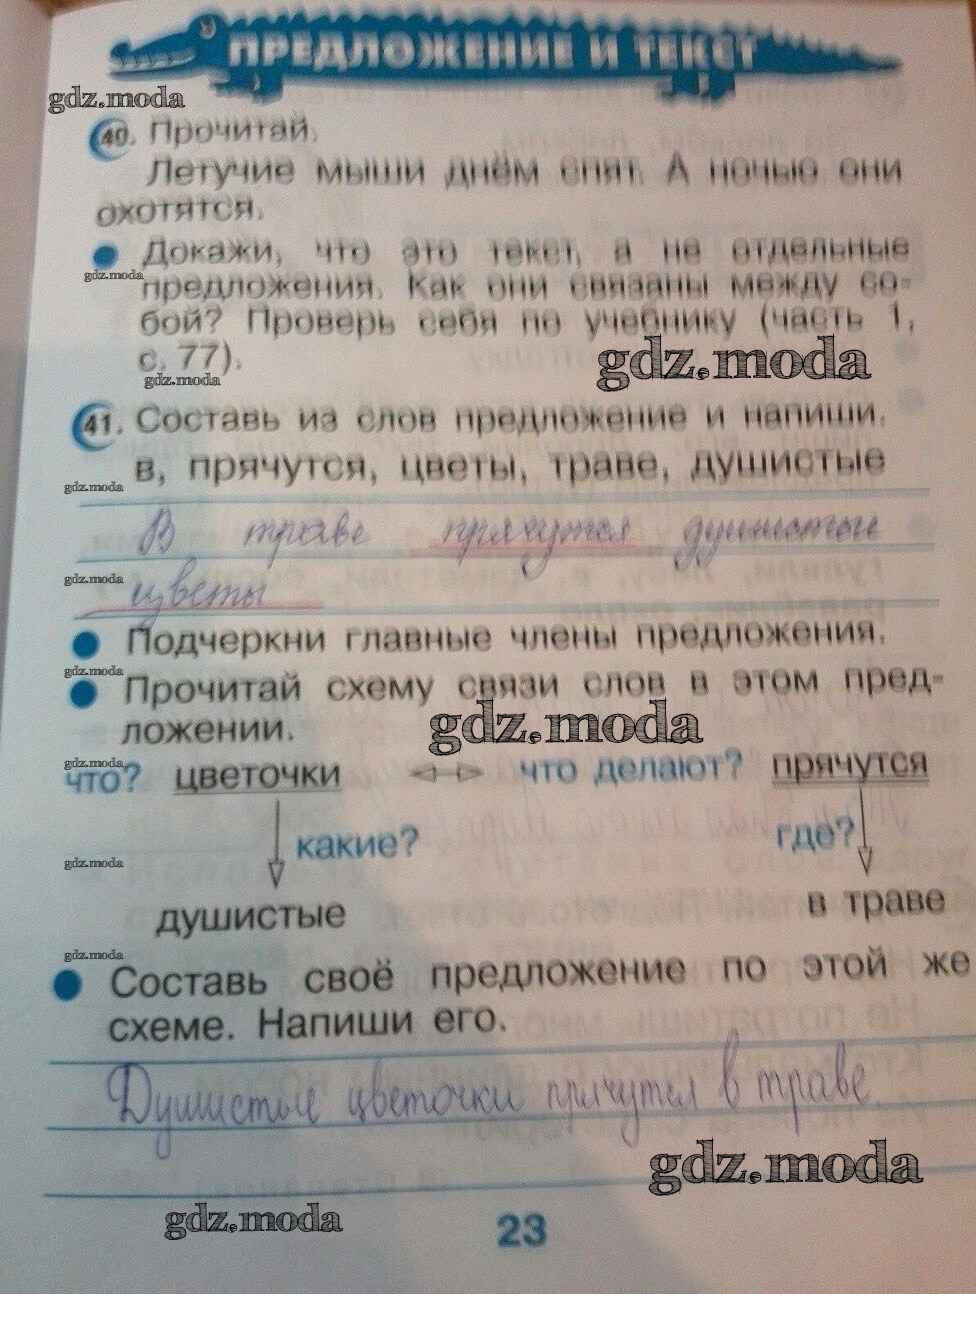 ПРЕДЛОЖЕНИЕ И ТЕКСТ
gdz.moda
40. Прочитай.
Летучие мыши днём спят. А ночью они
охотятся.
Докажи, что это текст, а не отдельные
gdz.moda
предложения. Как они связаны между со-
бой? Проверь себя по учебнику (часть 1,
с. 77).
gdz.moda
gdz.moda
41. Составь из слов предложение и напиши.
в, прячутся, цветы, траве, душистые
gdz.moda
В траве прячутся душистые
gdz.moda
цветы
Подчеркни главные члены предложения.
gdz.moda
Прочитай схему связи слов в этом пред-
ложении.
gdz.moda
gdz.moda
что? цветочки что делают? прячутся
какие? где?
gdz.moda
душистые в траве
gdz.moda
Составь своё предложение по этой же
схеме. Напиши его.
Душистые цветочки прячутся в траве
gdz.moda
gdz.moda
23